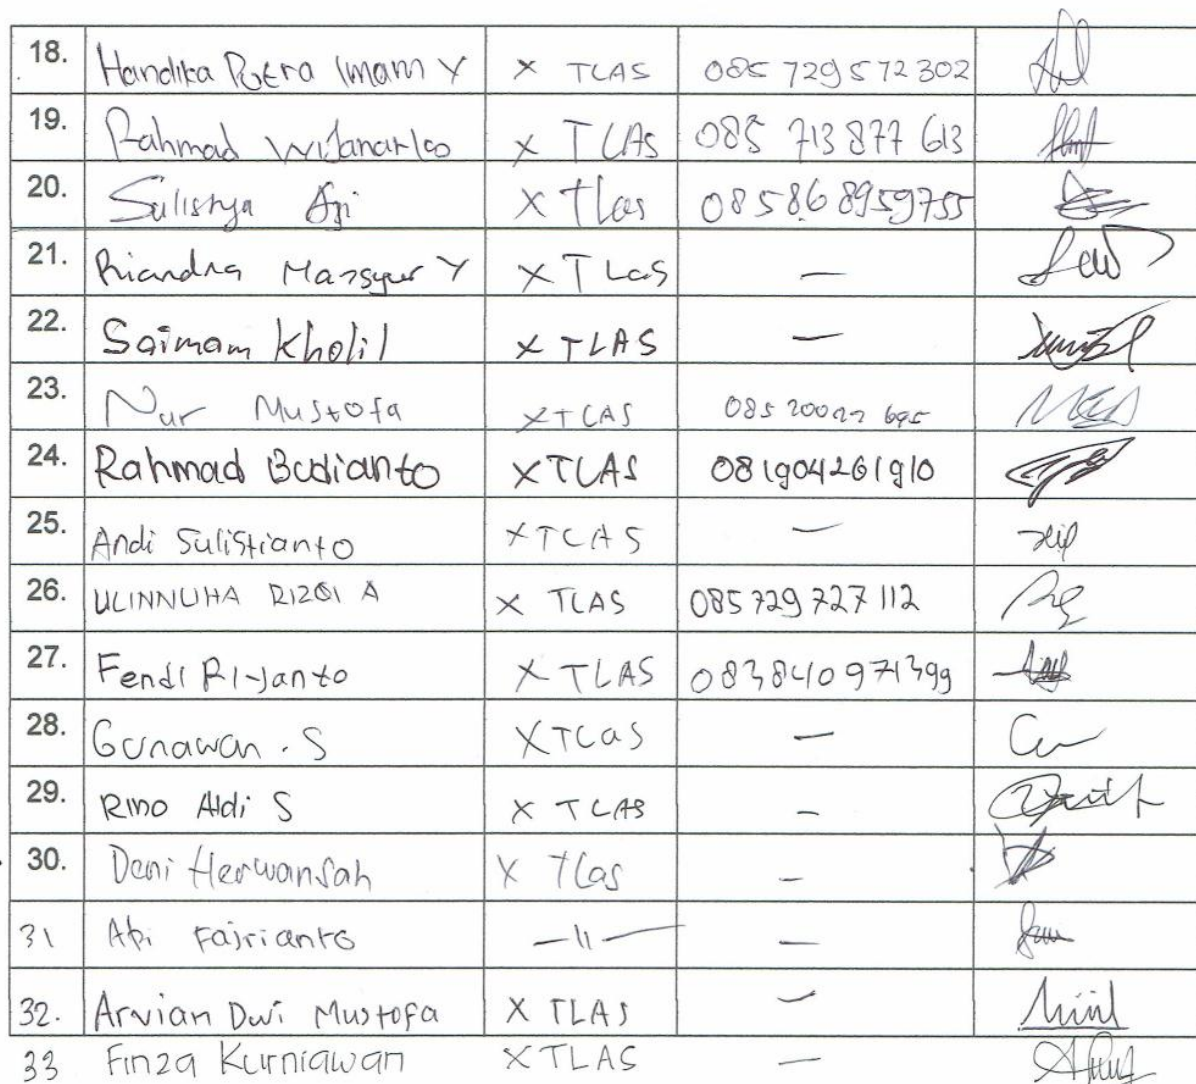 18. Handika Putra Imam Y X TLAS 085 729 572 302
19. Rahmad Wijanarko X TLAS 085 713 877 613
20. Sulistya Aji X TLas 085868959755
21. Riandra Mansyur Y X TLas —
22. Saimam Kholil X TLAS —
23. Nur Mustofa X TLAS
24. Rahmad Budianto X TLAS 081904261910
25. Andi Sulistianto X TLAS —
26. ULINNUHA RIZQI A X TLAS 085 729 727 112
27. Fendi Riyanto X TLAS 083840971399
28. Gunawan . S X TLas —
29. RINO Aldi S X TLAS —
30. Deni Herwansah X TLas —
31 Abi Fajrianto —11— —
32. Arvian Dwi Mustofa X TLAS —
33 Finza Kurniawan X TLAS —